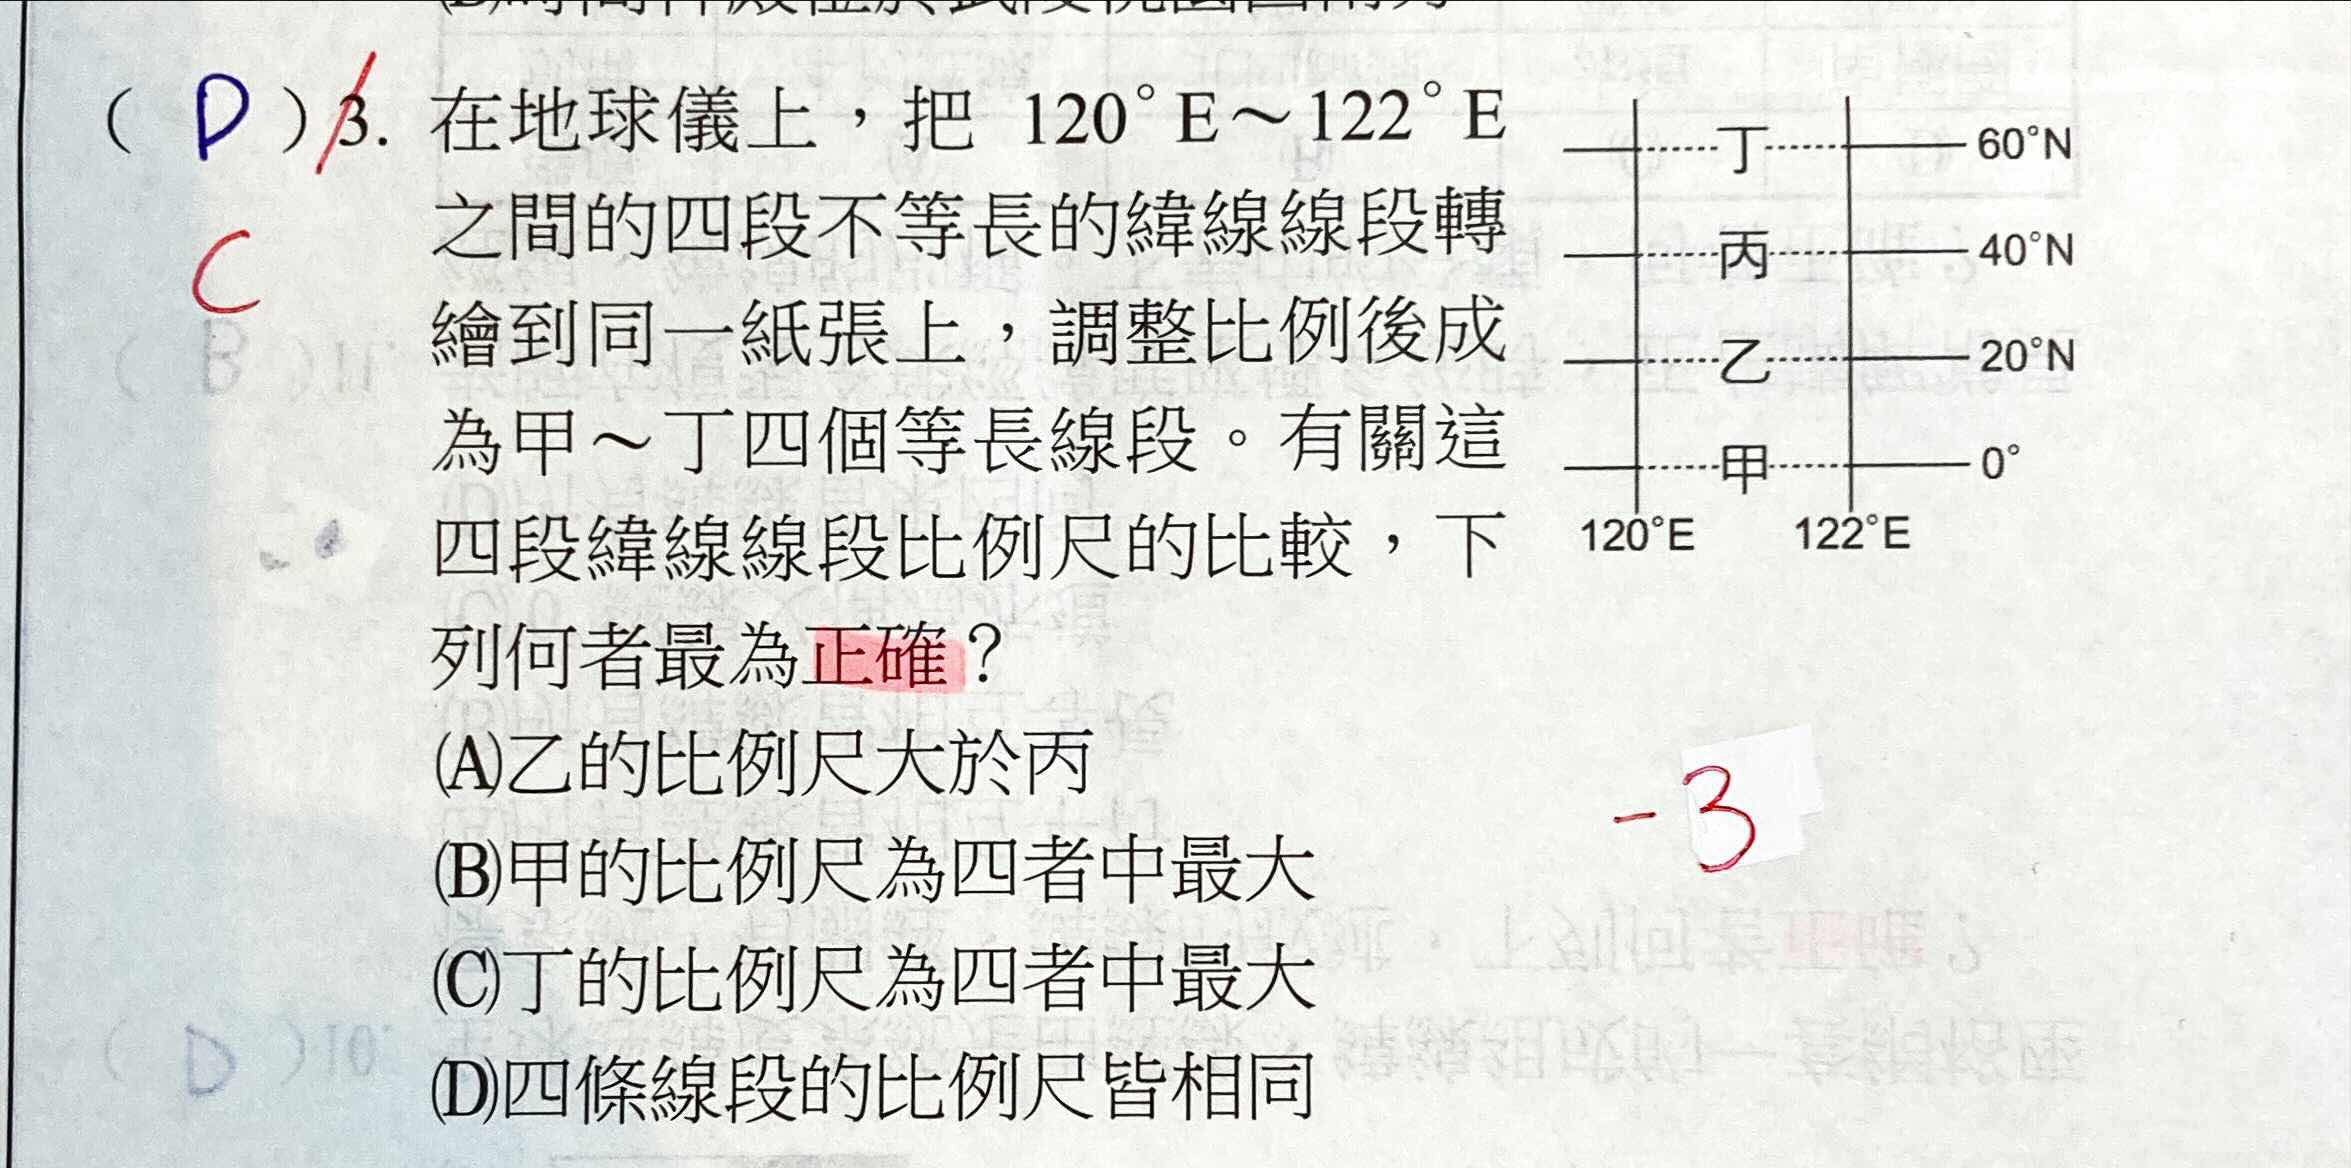 ( D ) 3. 在地球儀上，把 120°E～122°E
之間的四段不等長的緯線線段轉
C
繪到同一紙張上，調整比例後成
為甲～丁四個等長線段。有關這
四段緯線線段比例尺的比較，下
列何者最為正確？
(A)乙的比例尺大於丙
(B)甲的比例尺為四者中最大
(C)丁的比例尺為四者中最大
(D)四條線段的比例尺皆相同
丁 60°N
丙 40°N
乙 20°N
甲 0°
120°E 122°E
-3